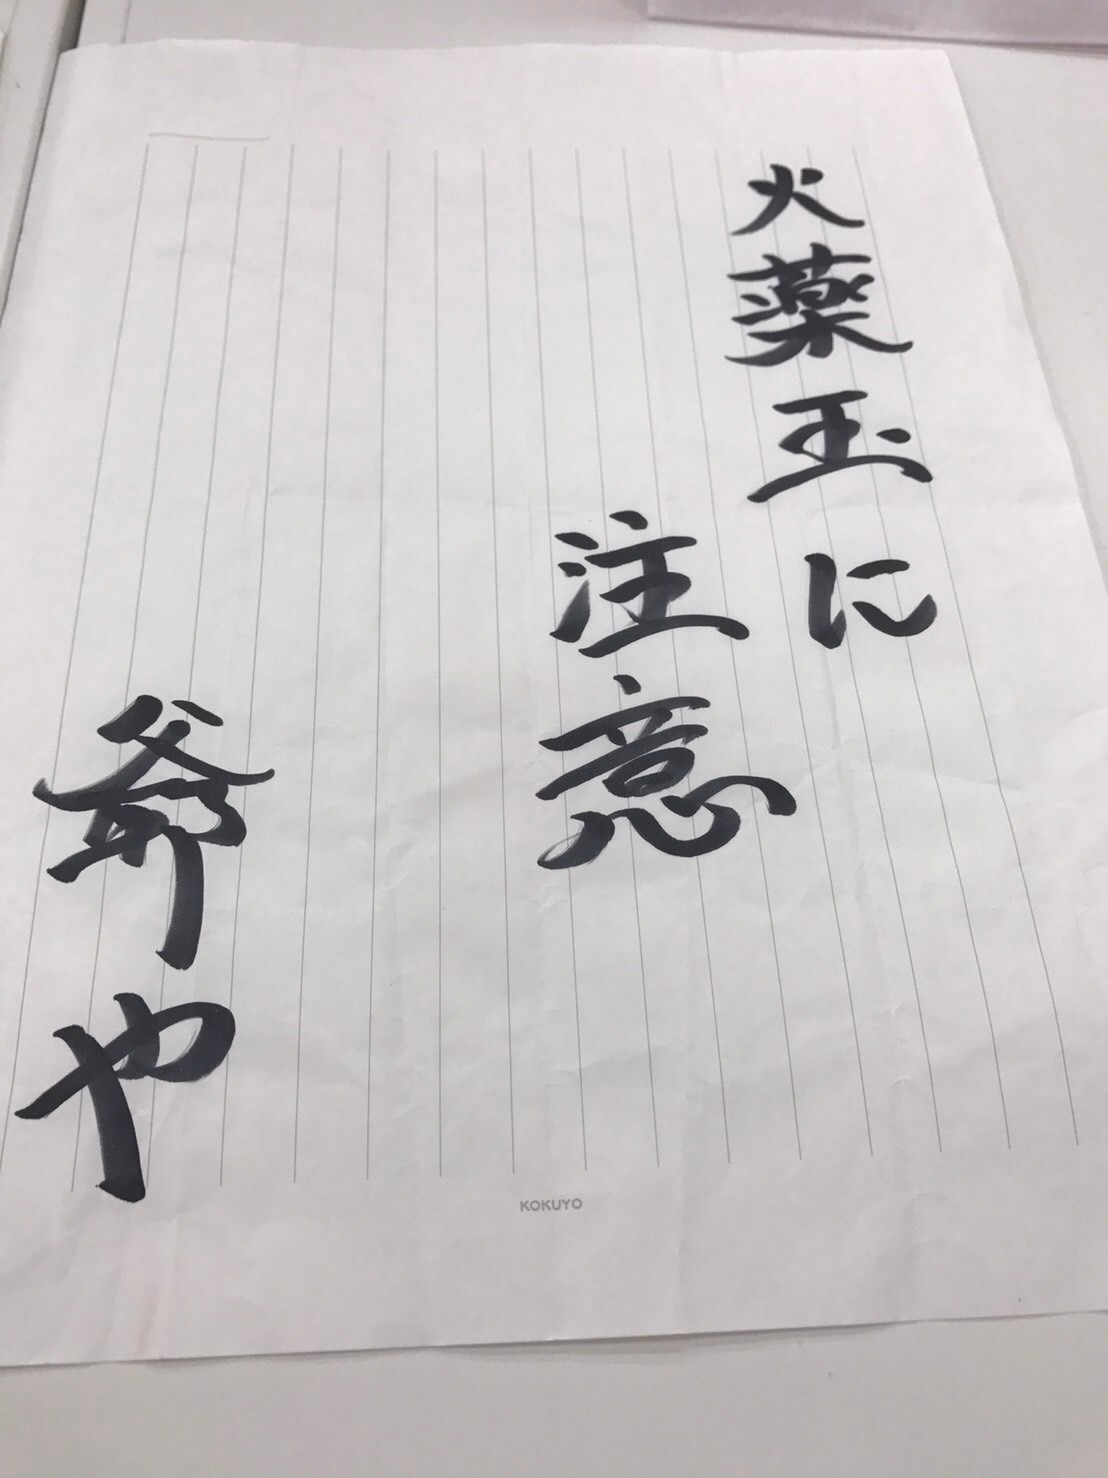 火薬玉に
注意
爺や
KOKUYO